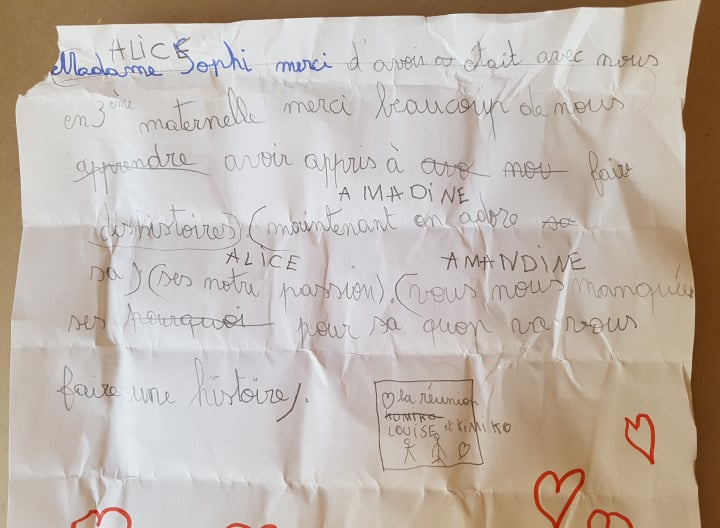 ALICE
Madame Sophi merci d'avoir a était avec nous
en 3ème maternelle merci beaucoup de nous
apprendre avoir appris à avo nou faire
dishistoires) (maintenant on adore sa
AMADINE
sa) (ses notre passion). (vous nous manquées
ALICE AMANDINE
ses pourquoi pour sa quon va vous
faire une histoire).
la réunion
KUMIKO
LOUISE et KIMIKO